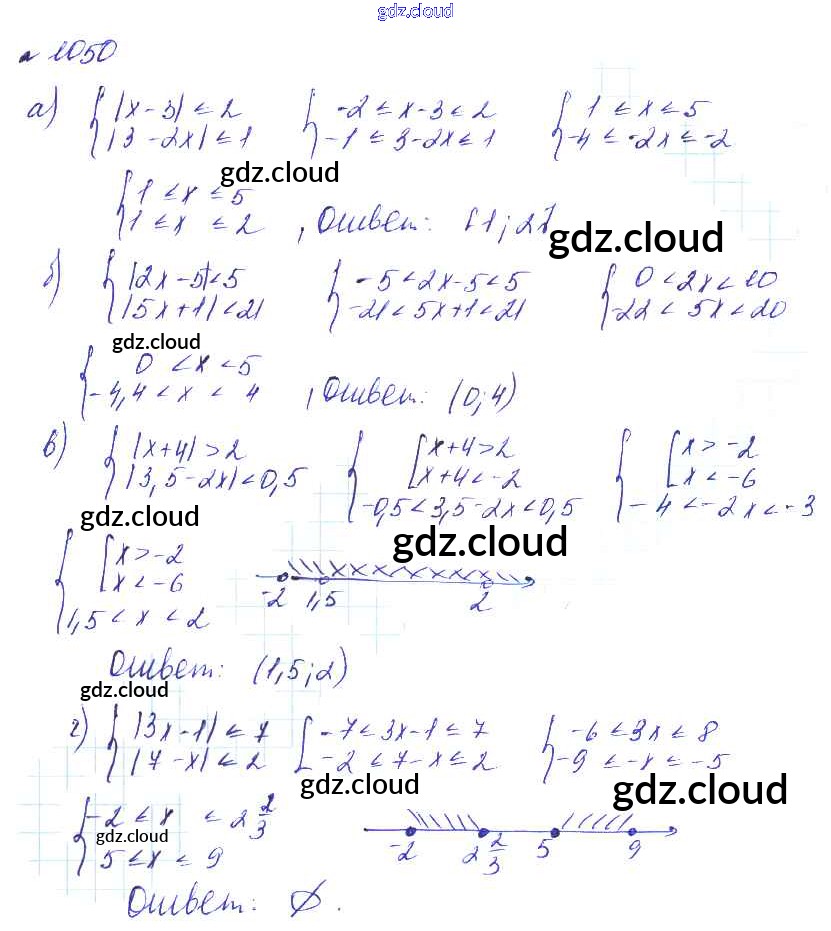 gdz.cloud
№ 1050
а) { |x-3| ≤ 2 { -2 ≤ x-3 ≤ 2 { 1 ≤ x ≤ 5
|3-2x| ≤ 1 -1 ≤ 3-2x ≤ 1 -4 ≤ -2x ≤ -2
gdz.cloud
{ 1 ≤ x ≤ 5
1 ≤ x ≤ 2 , Ответ: [1; 2]
gdz.cloud
б) { |2x-5| < 5 { -5 < 2x-5 < 5 { 0 < 2x < 10
|5x+1| < 21 -21 < 5x+1 < 21 -22 < 5x < 20
gdz.cloud
{ 0 < x < 5
-4,4 < x < 4 , Ответ: (0; 4)
в) { |x+4| > 2 { [ x+4 > 2 { [ x > -2
|3,5-2x| < 0,5 x+4 < -2 x < -6
-0,5 < 3,5-2x < 0,5 -4 < -2x < -3
gdz.cloud
gdz.cloud
{ [ x > -2
x < -6
1,5 < x < 2
-2 1,5 2
Ответ: (1,5; 2)
gdz.cloud
г) { |3x-1| ≤ 7 [ -7 ≤ 3x-1 ≤ 7 { -6 ≤ 3x ≤ 8
|7-x| ≤ 2 -2 ≤ 7-x ≤ 2 -9 ≤ -x ≤ -5
gdz.cloud
gdz.cloud
{ -2 ≤ x ≤ 2 2/3
gdz.cloud
5 ≤ x ≤ 9
-2 2 2/3 5 9
Ответ: ∅.